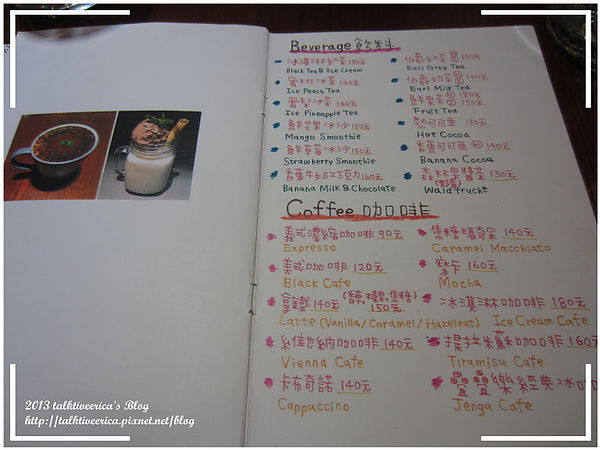 Beverage 飲料
冰淇淋紅茶 150元
Black Tea & Ice Cream
蜜桃冰茶 140元
Ice Peach Tea
鳳梨冰茶 140元
Ice Pineapple Tea
鮮芒果冰沙 150元
Mango Smoothie
鮮草莓冰沙 150元
Strawberry Smoothie
香蕉牛奶巧克力 160元
Banana Milk & Chocolate
伯爵紅茶 120元
Earl Grey Tea
伯爵奶茶 140元
Earl Milk Tea
鮮果茶 180元 150元
Fruit Tea
熱可可亞 130元
Hot Cocoa
香蕉可可亞 140元
Banana Cocoa
森林果醬茶 150元
Waldfrucht
Coffee 咖啡
義式濃縮咖啡 90元
Expresso
美式咖啡 120元
Black Cafe
拿鐵 140元 (香草, 榛果, 焦糖) 150元
Latte (Vanilla/Caramel/Hazelnut)
維也納咖啡 140元
Vienna Cafe
卡布奇諾 140元
Cappuccino
焦糖瑪奇朵 140元
Caramel Macchiato
摩卡 160元
Mocha
冰淇淋咖啡 180元
Ice Cream Cafe
提拉米蘇咖啡 160元
Tiramisu Cafe
疊疊樂經典冰咖
Jenga Cafe
2013 talktiveerica's Blog
http://talktiveerica.pixnet.net/blog